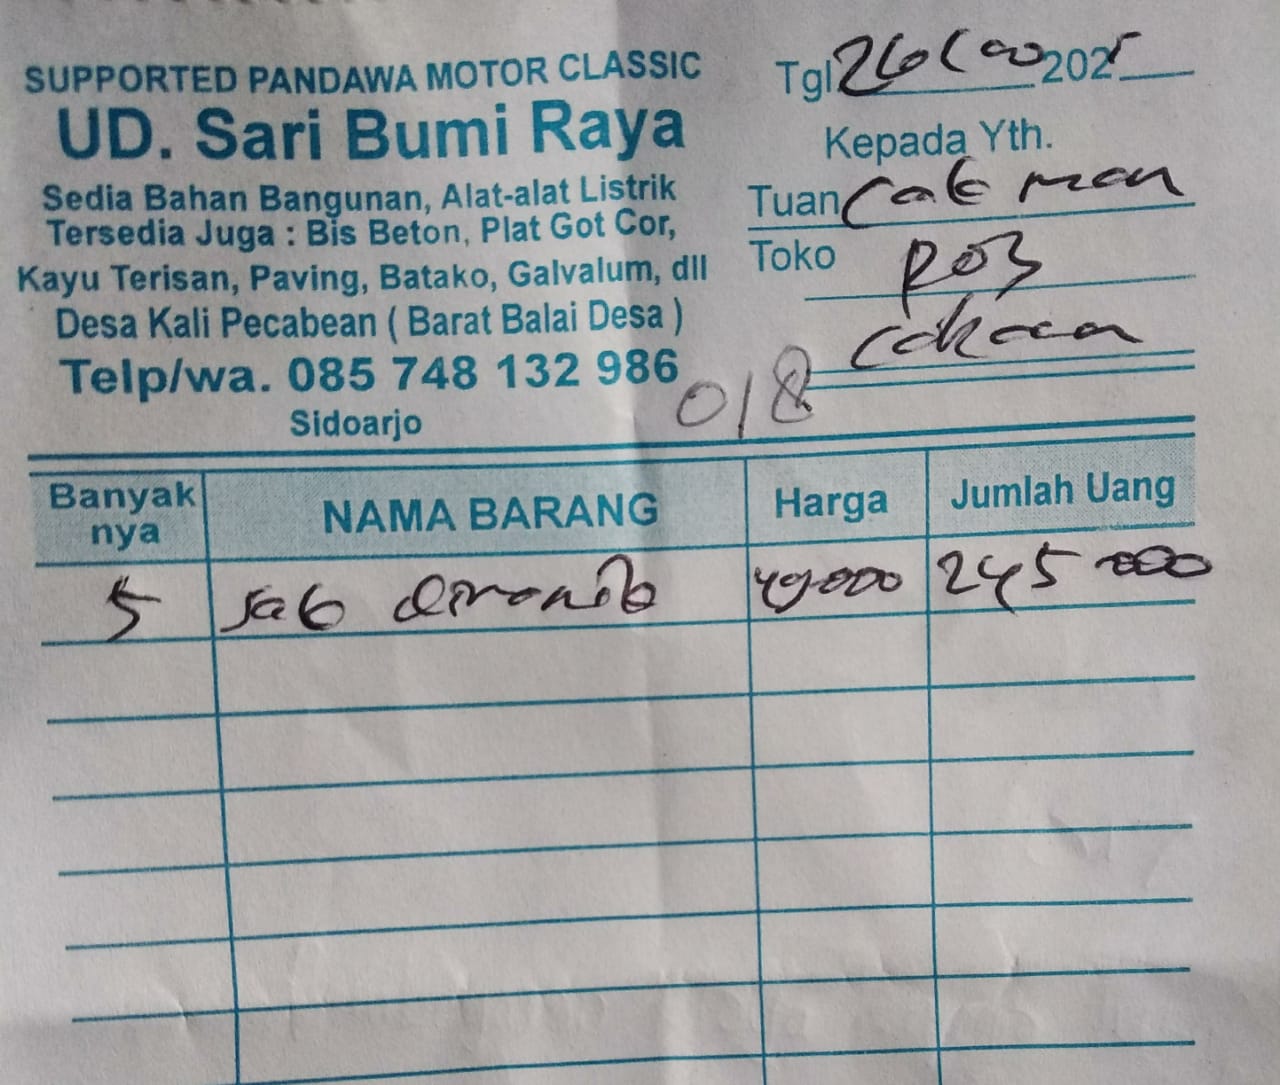 SUPPORTED PANDAWA MOTOR CLASSIC
UD. Sari Bumi Raya
Sedia Bahan Bangunan, Alat-alat Listrik
Tersedia Juga : Bis Beton, Plat Got Cor,
Kayu Terisan, Paving, Batako, Galvalum, dll
Desa Kali Pecabean ( Barat Balai Desa )
Telp/wa. 085 748 132 986
Sidoarjo
Tgl 26 2025
Kepada Yth.
Tuan Cak man
Toko pos
018
Banyak nya NAMA BARANG Harga Jumlah Uang
5 sak 49.000 245 000